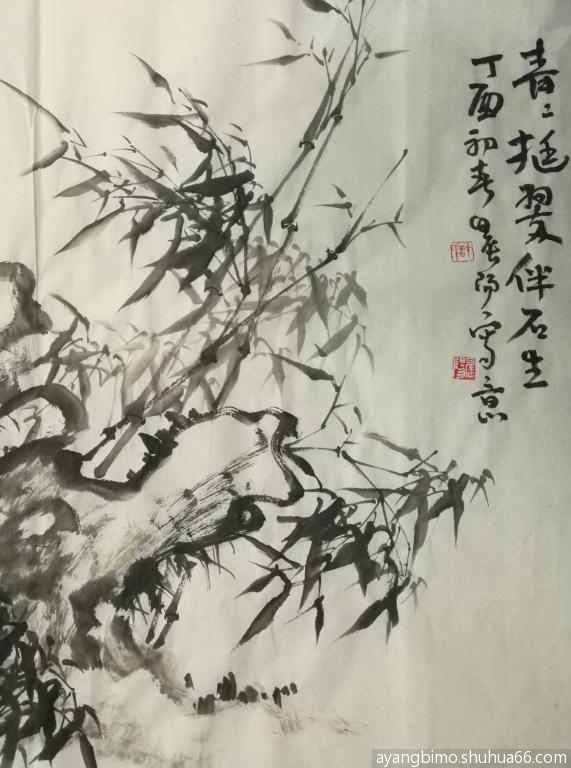 青〻挺翠伴石生
丁酉初春晨阳写意
ayangbimo.shuhua66.com